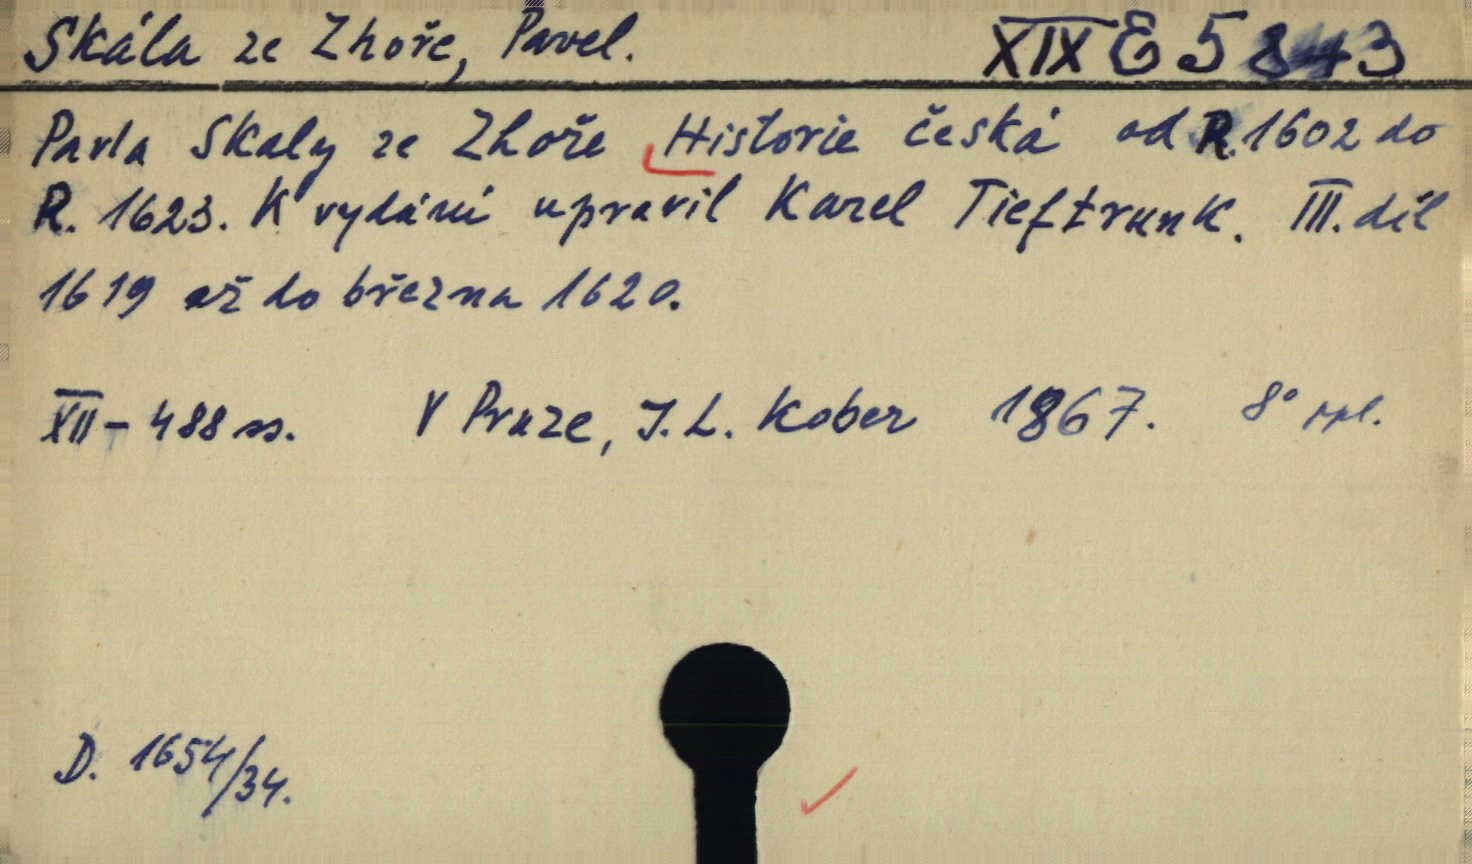 Skála ze Zhoře, Pavel. XIX E 5843
Pavla Skaly ze Zhoře Historie česká od R. 1602 do
R. 1623. K vydání upravil Karel Tieftrunk. III. díl
1619 až do března 1620.
XII – 488 ss. V Praze, J. L. Kober 1867. 8° ppl.
D. 1654/34.